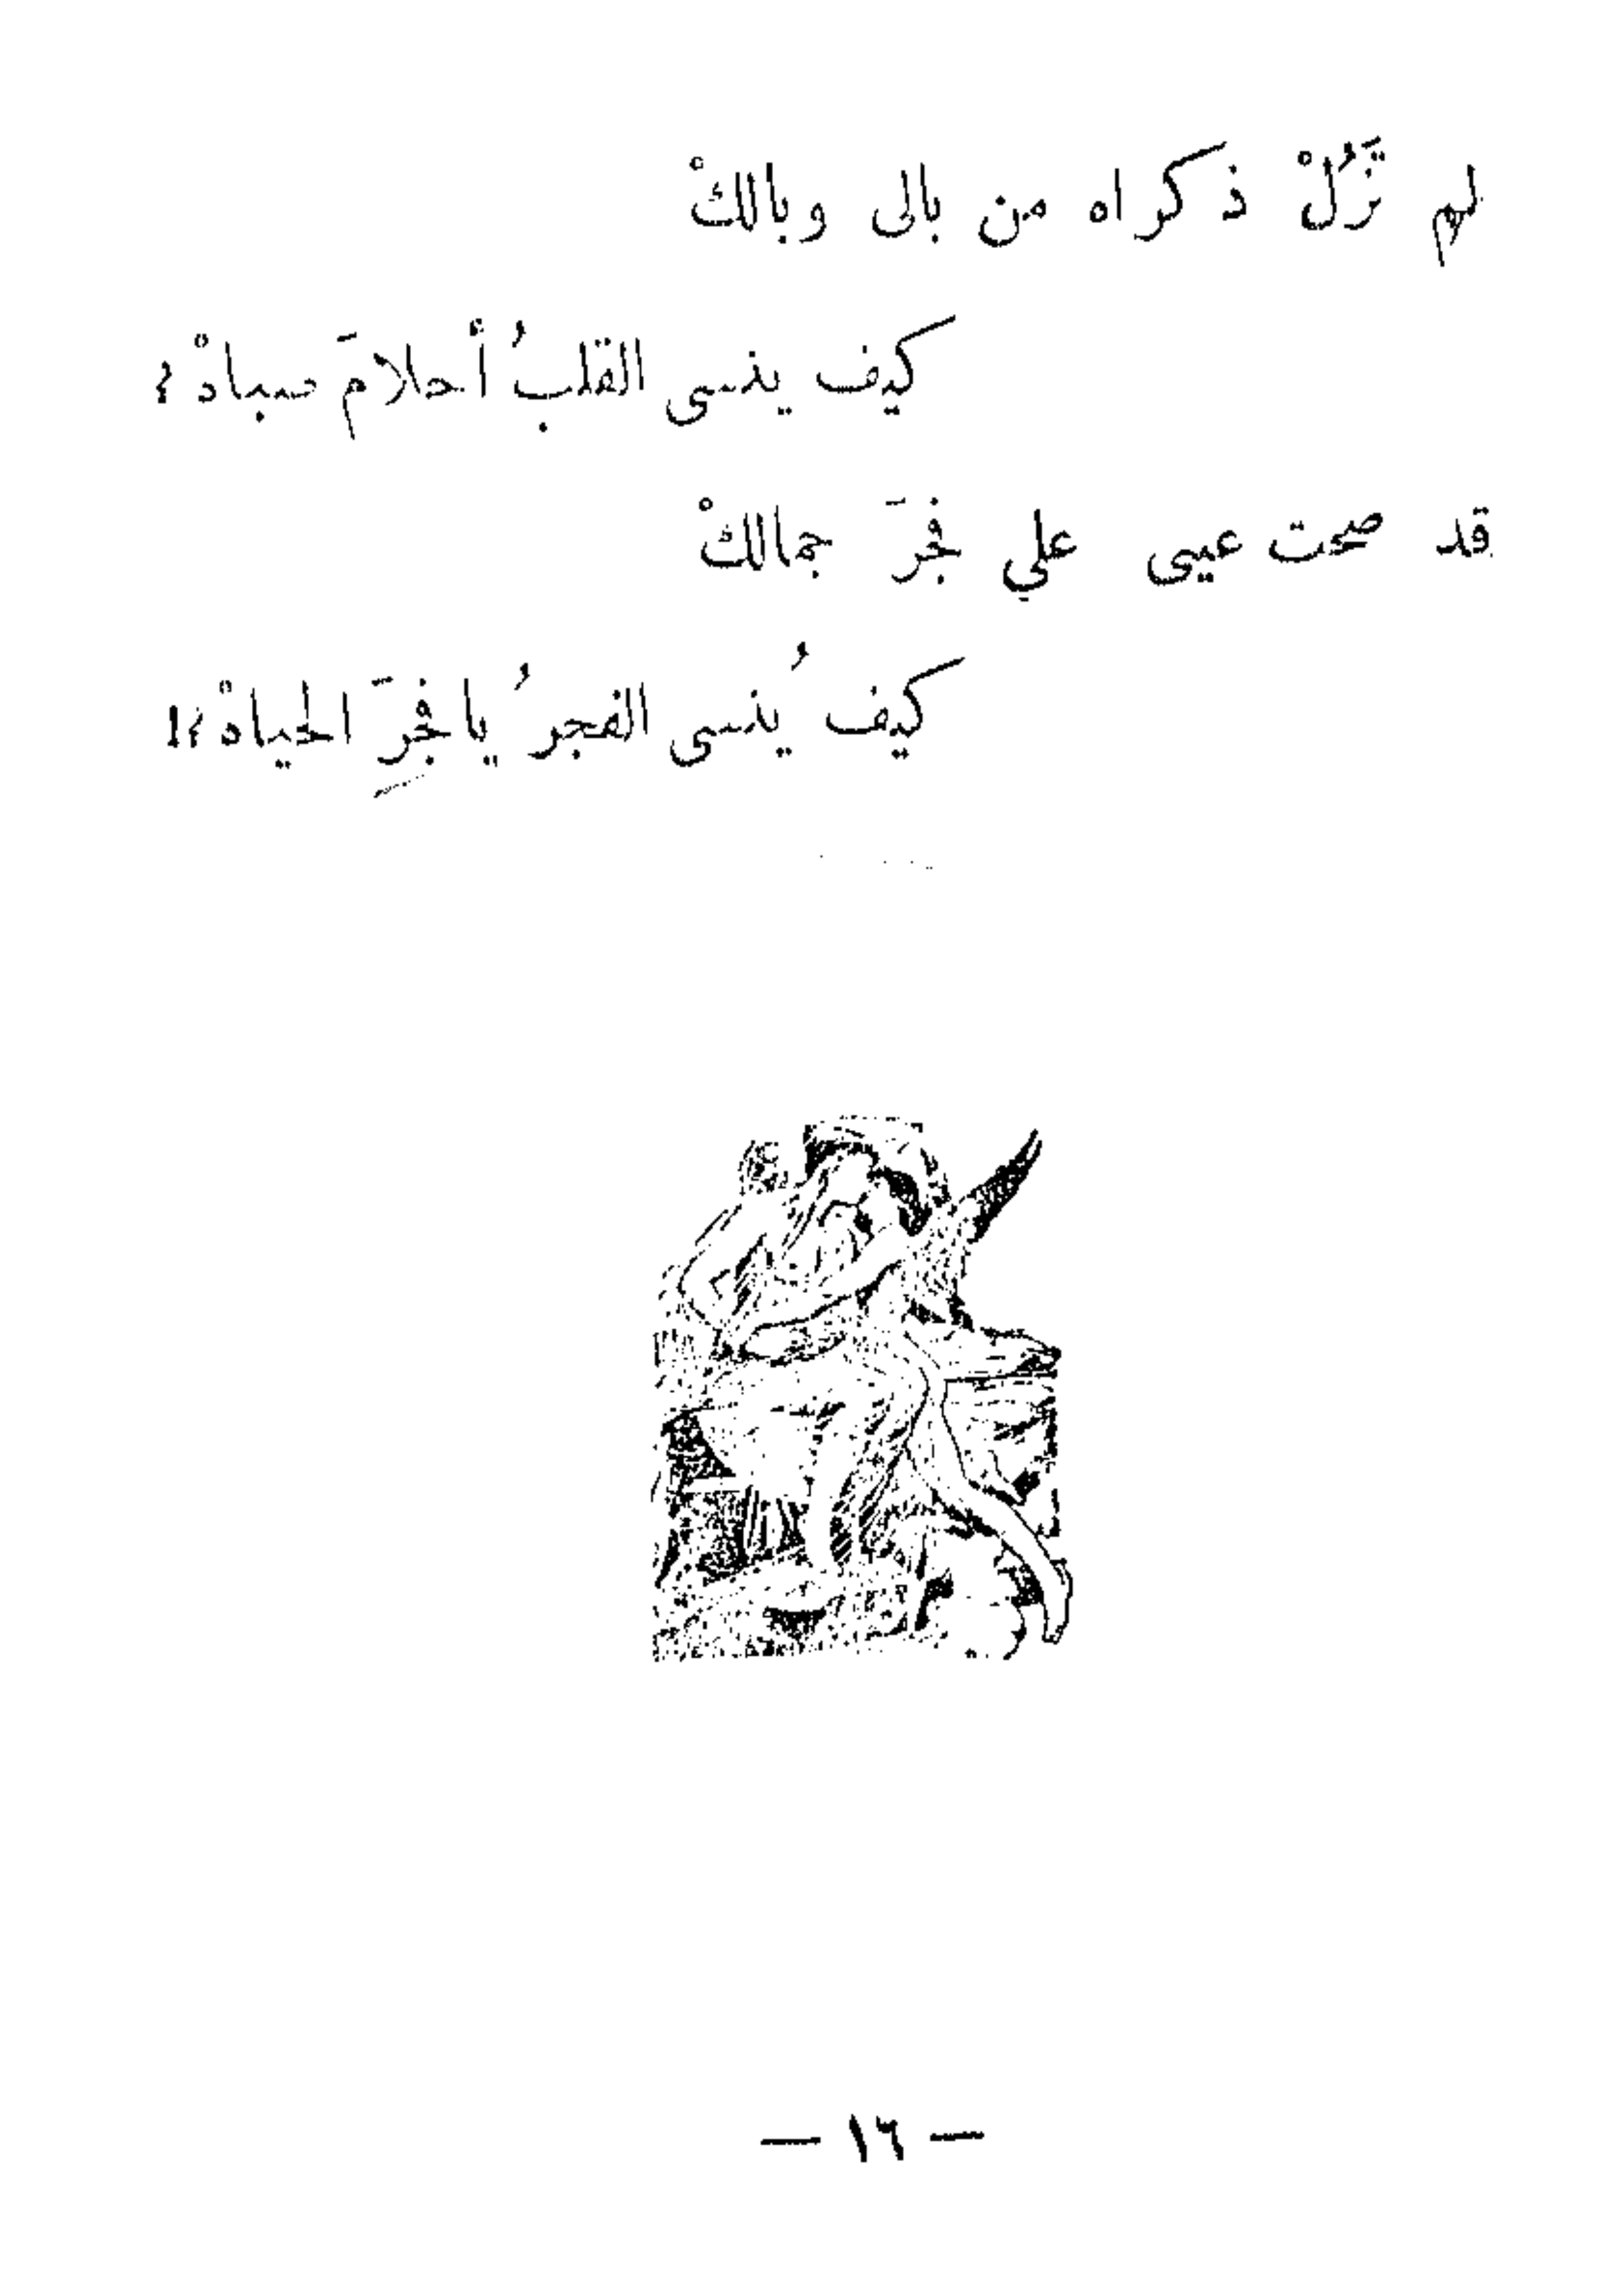 لم تَزُلْ ذكراه من بالى وبالكْ
كيف ينسى القلبُ أحلامَ صباهْ ؟
قد صحت عينى على فجرَ جمالكْ
كيف يُنسى الفجرُ يا فجرَ الحياهْ ؟!
— ١٦ —